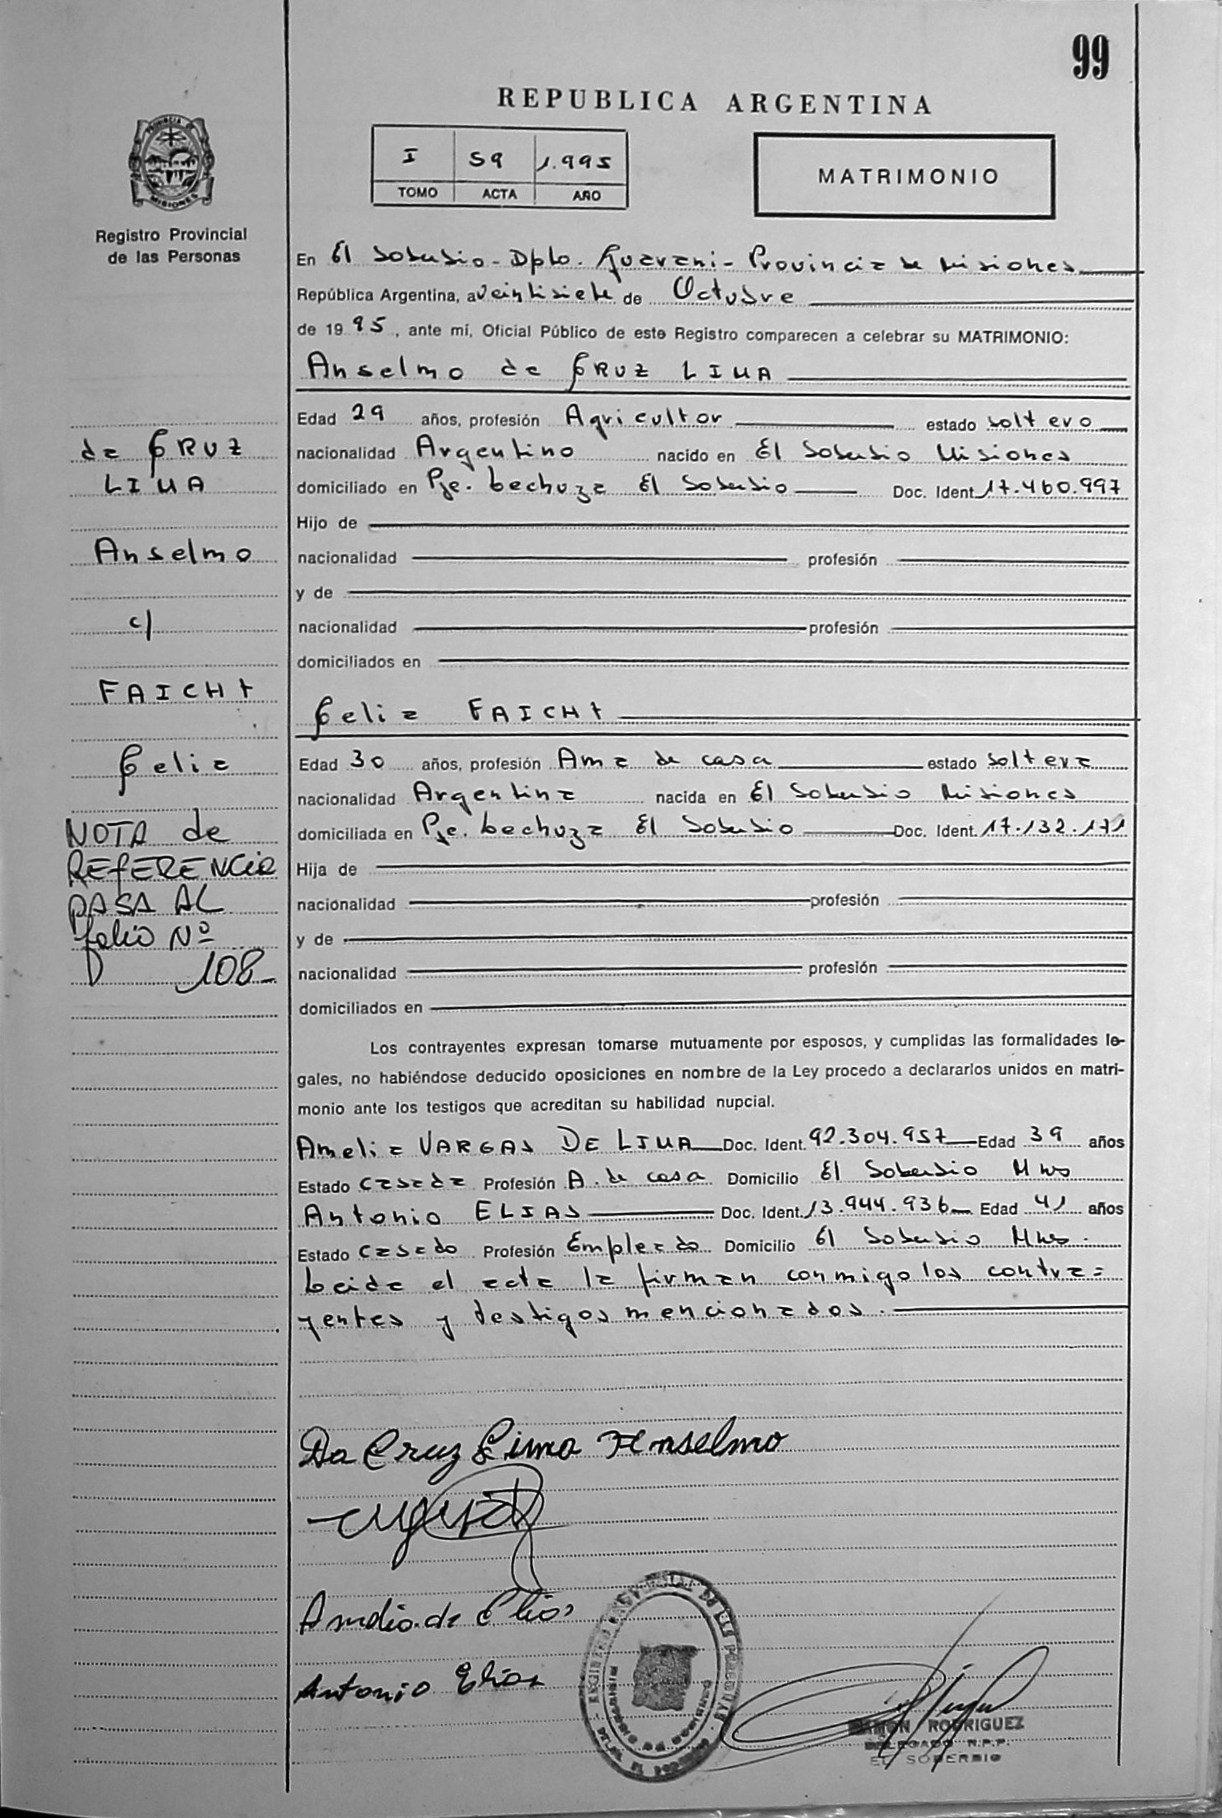 99
REPUBLICA ARGENTINA
I 59 1.995
TOMO ACTA AÑO
MATRIMONIO
PROVINCIA DE MISIONES
Registro Provincial
de las Personas
En El Soberbio - Dpto. Guarani - Provincia de Misiones
República Argentina, a veintisiete de Octubre
de 19 95, ante mí, Oficial Público de este Registro comparecen a celebrar su MATRIMONIO:
Anselmo da CRUZ LIMA
Edad 29 años, profesión Agricultor estado soltero
nacionalidad Argentino nacido en El Soberbio Misiones
domiciliado en Pje. Lechuza El Soberbio Doc. Ident. 17.460.997
Hijo de
nacionalidad profesión
y de
nacionalidad profesión
domiciliados en
Celia FAICHT
Edad 30 años, profesión Ama de casa estado soltera
nacionalidad Argentina nacida en El Soberbio Misiones
domiciliada en Pje. Lechuza El Soberbio Doc. Ident. 17.132.171
Hija de
nacionalidad profesión
y de
nacionalidad profesión
domiciliados en
da CRUZ
LIMA
Anselmo
c/
FAICHT
Celia
NOTA de
REFERENCIA
PASA AL
folio Nº
108-
Los contrayentes expresan tomarse mutuamente por esposos, y cumplidas las formalidades le-
gales, no habiéndose deducido oposiciones en nombre de la Ley procedo a declararlos unidos en matri-
monio ante los testigos que acreditan su habilidad nupcial.
Amelia VARGAS DE LIMA Doc. Ident. 92.304.957 Edad 39 años
Estado casada Profesión A. de casa Domicilio El Soberbio Mnes
Antonio ELIAS Doc. Ident. 13.944.936 Edad 41 años
Estado casado Profesión Empleado Domicilio El Soberbio Mnes.
Leida el acta la firman conmigo los contra=
yentes y testigos mencionados.
Da Cruz Lima Anselmo
Antonio Elias
RAMON RODRIGUEZ
DELEGADO R.P.P.
EL SOBERBIO